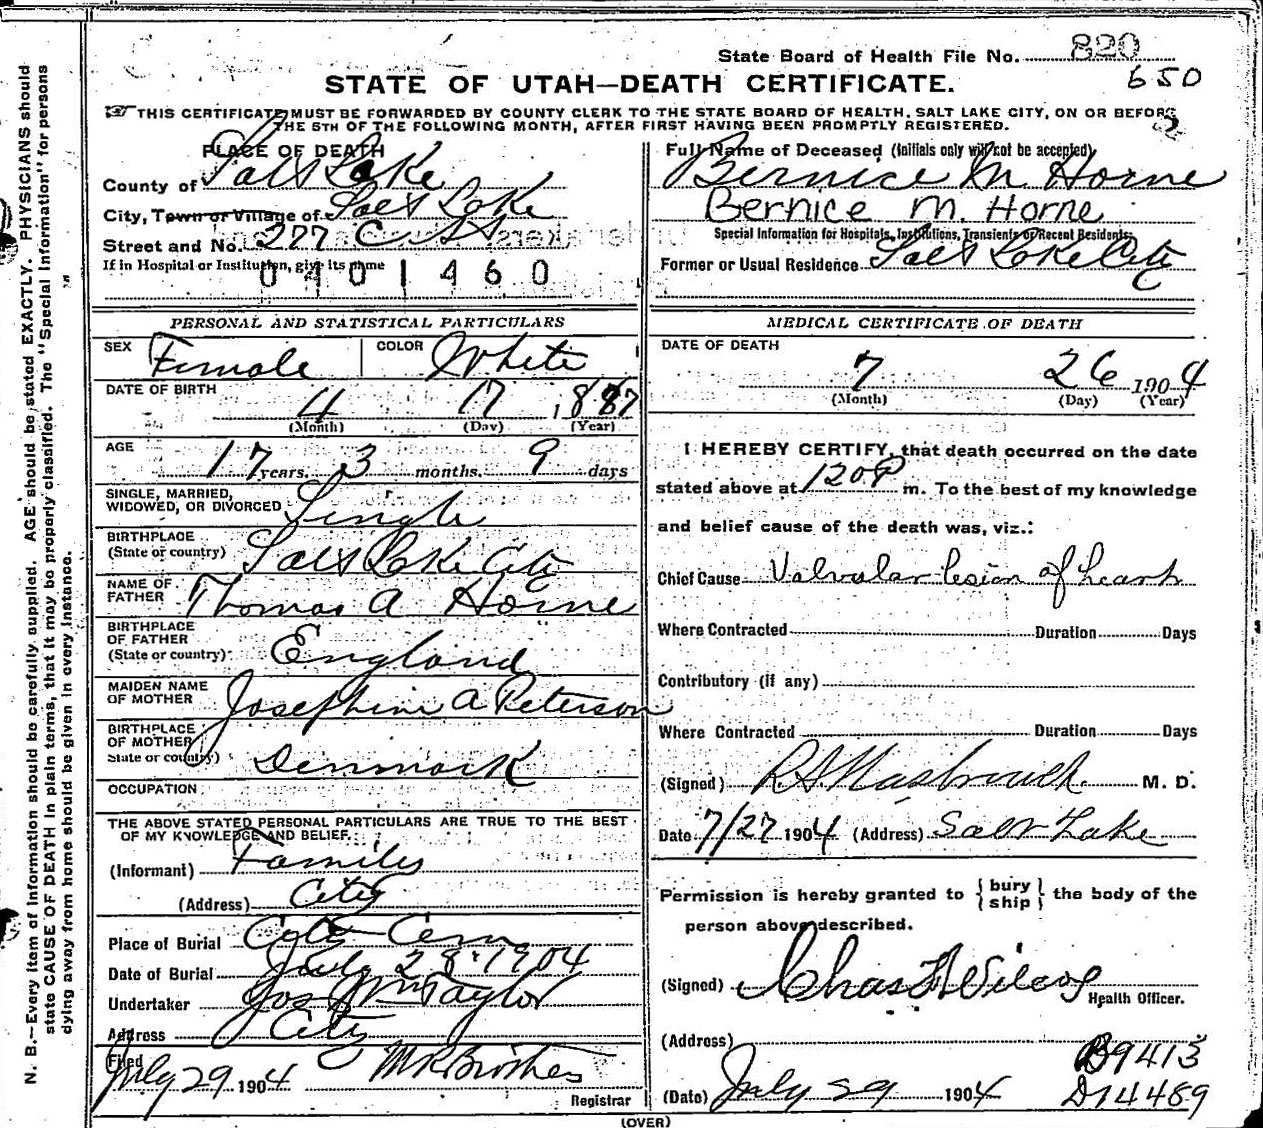 State Board of Health File No. 820
650
STATE OF UTAH—DEATH CERTIFICATE.
THIS CERTIFICATE MUST BE FORWARDED BY COUNTY CLERK TO THE STATE BOARD OF HEALTH, SALT LAKE CITY, ON OR BEFORE
THE 5TH OF THE FOLLOWING MONTH, AFTER FIRST HAVING BEEN PROMPTLY REGISTERED.
PLACE OF DEATH
County of Salt Lake
City, Town or Village of Salt Lake
Street and No. 277 C St
If in Hospital or Institution, give its name
0401460
Full Name of Deceased (Initials only will not be accepted)
Bernice M Horne
Bernice M. Horne
Special Information for Hospitals, Institutions, Transients or Recent Residents:
Former or Usual Residence Salt Lake City
PERSONAL AND STATISTICAL PARTICULARS
SEX Female COLOR White
DATE OF BIRTH
4 17 1887
(Month) (Day) (Year)
AGE
17 years. 3 months. 9 days
SINGLE, MARRIED,
WIDOWED, OR DIVORCED Single
BIRTHPLACE
(State or country) Salt Lake City
NAME OF
FATHER Thomas A Horne
BIRTHPLACE
OF FATHER
(State or country) England
MAIDEN NAME
OF MOTHER Josephine A Peterson
BIRTHPLACE
OF MOTHER
State or country) Denmark
OCCUPATION
THE ABOVE STATED PERSONAL PARTICULARS ARE TRUE TO THE BEST
OF MY KNOWLEDGE AND BELIEF.
(Informant) Family
(Address) City
Place of Burial City Cem
Date of Burial July 28 1904
Undertaker Jos Wm Taylor
Address City
Filed
July 29 1904
Registrar
MEDICAL CERTIFICATE OF DEATH
DATE OF DEATH
7 26 1904
(Month) (Day) (Year)
I HEREBY CERTIFY, that death occurred on the date
stated above at 120P m. To the best of my knowledge
and belief cause of the death was, viz.:
Chief Cause Valvular lesion of heart
Where Contracted Duration Days
Contributory (if any)
Where Contracted Duration Days
(Signed) M. D.
Date 7/27 1904 (Address) Salt Lake
Permission is hereby granted to { bury ship } the body of the
person above described.
(Signed) Chas Wilcox
Health Officer.
(Address)
B9413
(Date) July 29 1904 D14489
(OVER)
N. B.—Every item of information should be carefully supplied. AGE should be stated EXACTLY. PHYSICIANS should
state CAUSE OF DEATH in plain terms, that it may be properly classified. The "Special Information" for persons
dying away from home should be given in every instance.